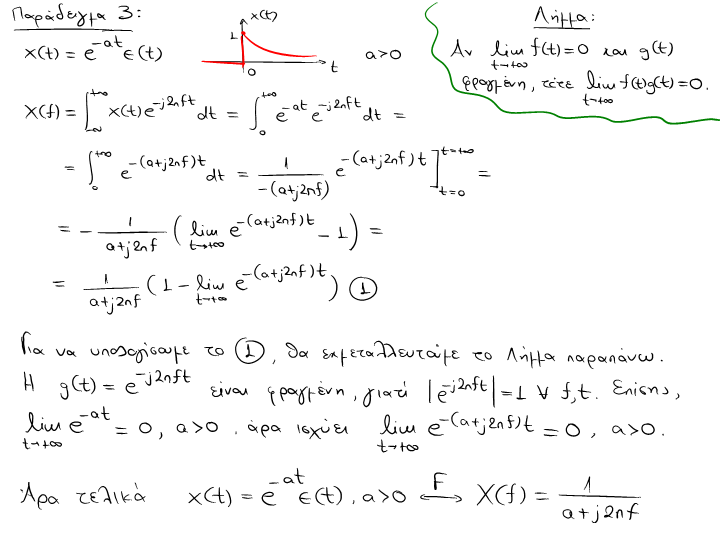 Παράδειγμα 3:
x(t) = e^{-at} ε(t)
x(t)
1
0
t
a>0
Λήμμα:
Αν lim_{t→+∞} f(t)=0 και g(t)
φραγμένη, τότε lim_{t→+∞} f(t)g(t)=0.
X(f) = ∫_{-∞}^{+∞} x(t) e^{-j2πft} dt = ∫_{0}^{+∞} e^{-at} e^{-j2πft} dt =
= ∫_{0}^{+∞} e^{-(a+j2πf)t} dt = \frac{1}{-(a+j2πf)} e^{-(a+j2πf)t} ]_{t=0}^{t=+∞} =
= - \frac{1}{a+j2πf} ( lim_{t→+∞} e^{-(a+j2πf)t} - 1 ) =
= \frac{1}{a+j2πf} ( 1 - lim_{t→+∞} e^{-(a+j2πf)t} ) ①
Για να υπολογίσουμε το ①, θα εκμεταλλευτούμε το Λήμμα παραπάνω.
Η g(t) = e^{-j2πft} είναι φραγμένη, γιατί |e^{-j2πft}| = 1 ∀ f,t. Επίσης,
lim_{t→+∞} e^{-at} = 0, a>0, άρα ισχύει lim_{t→+∞} e^{-(a+j2πf)t} = 0, a>0.
Άρα τελικά x(t) = e^{-at} ε(t), a>0 ⟷^{F} X(f) = \frac{1}{a+j2πf}